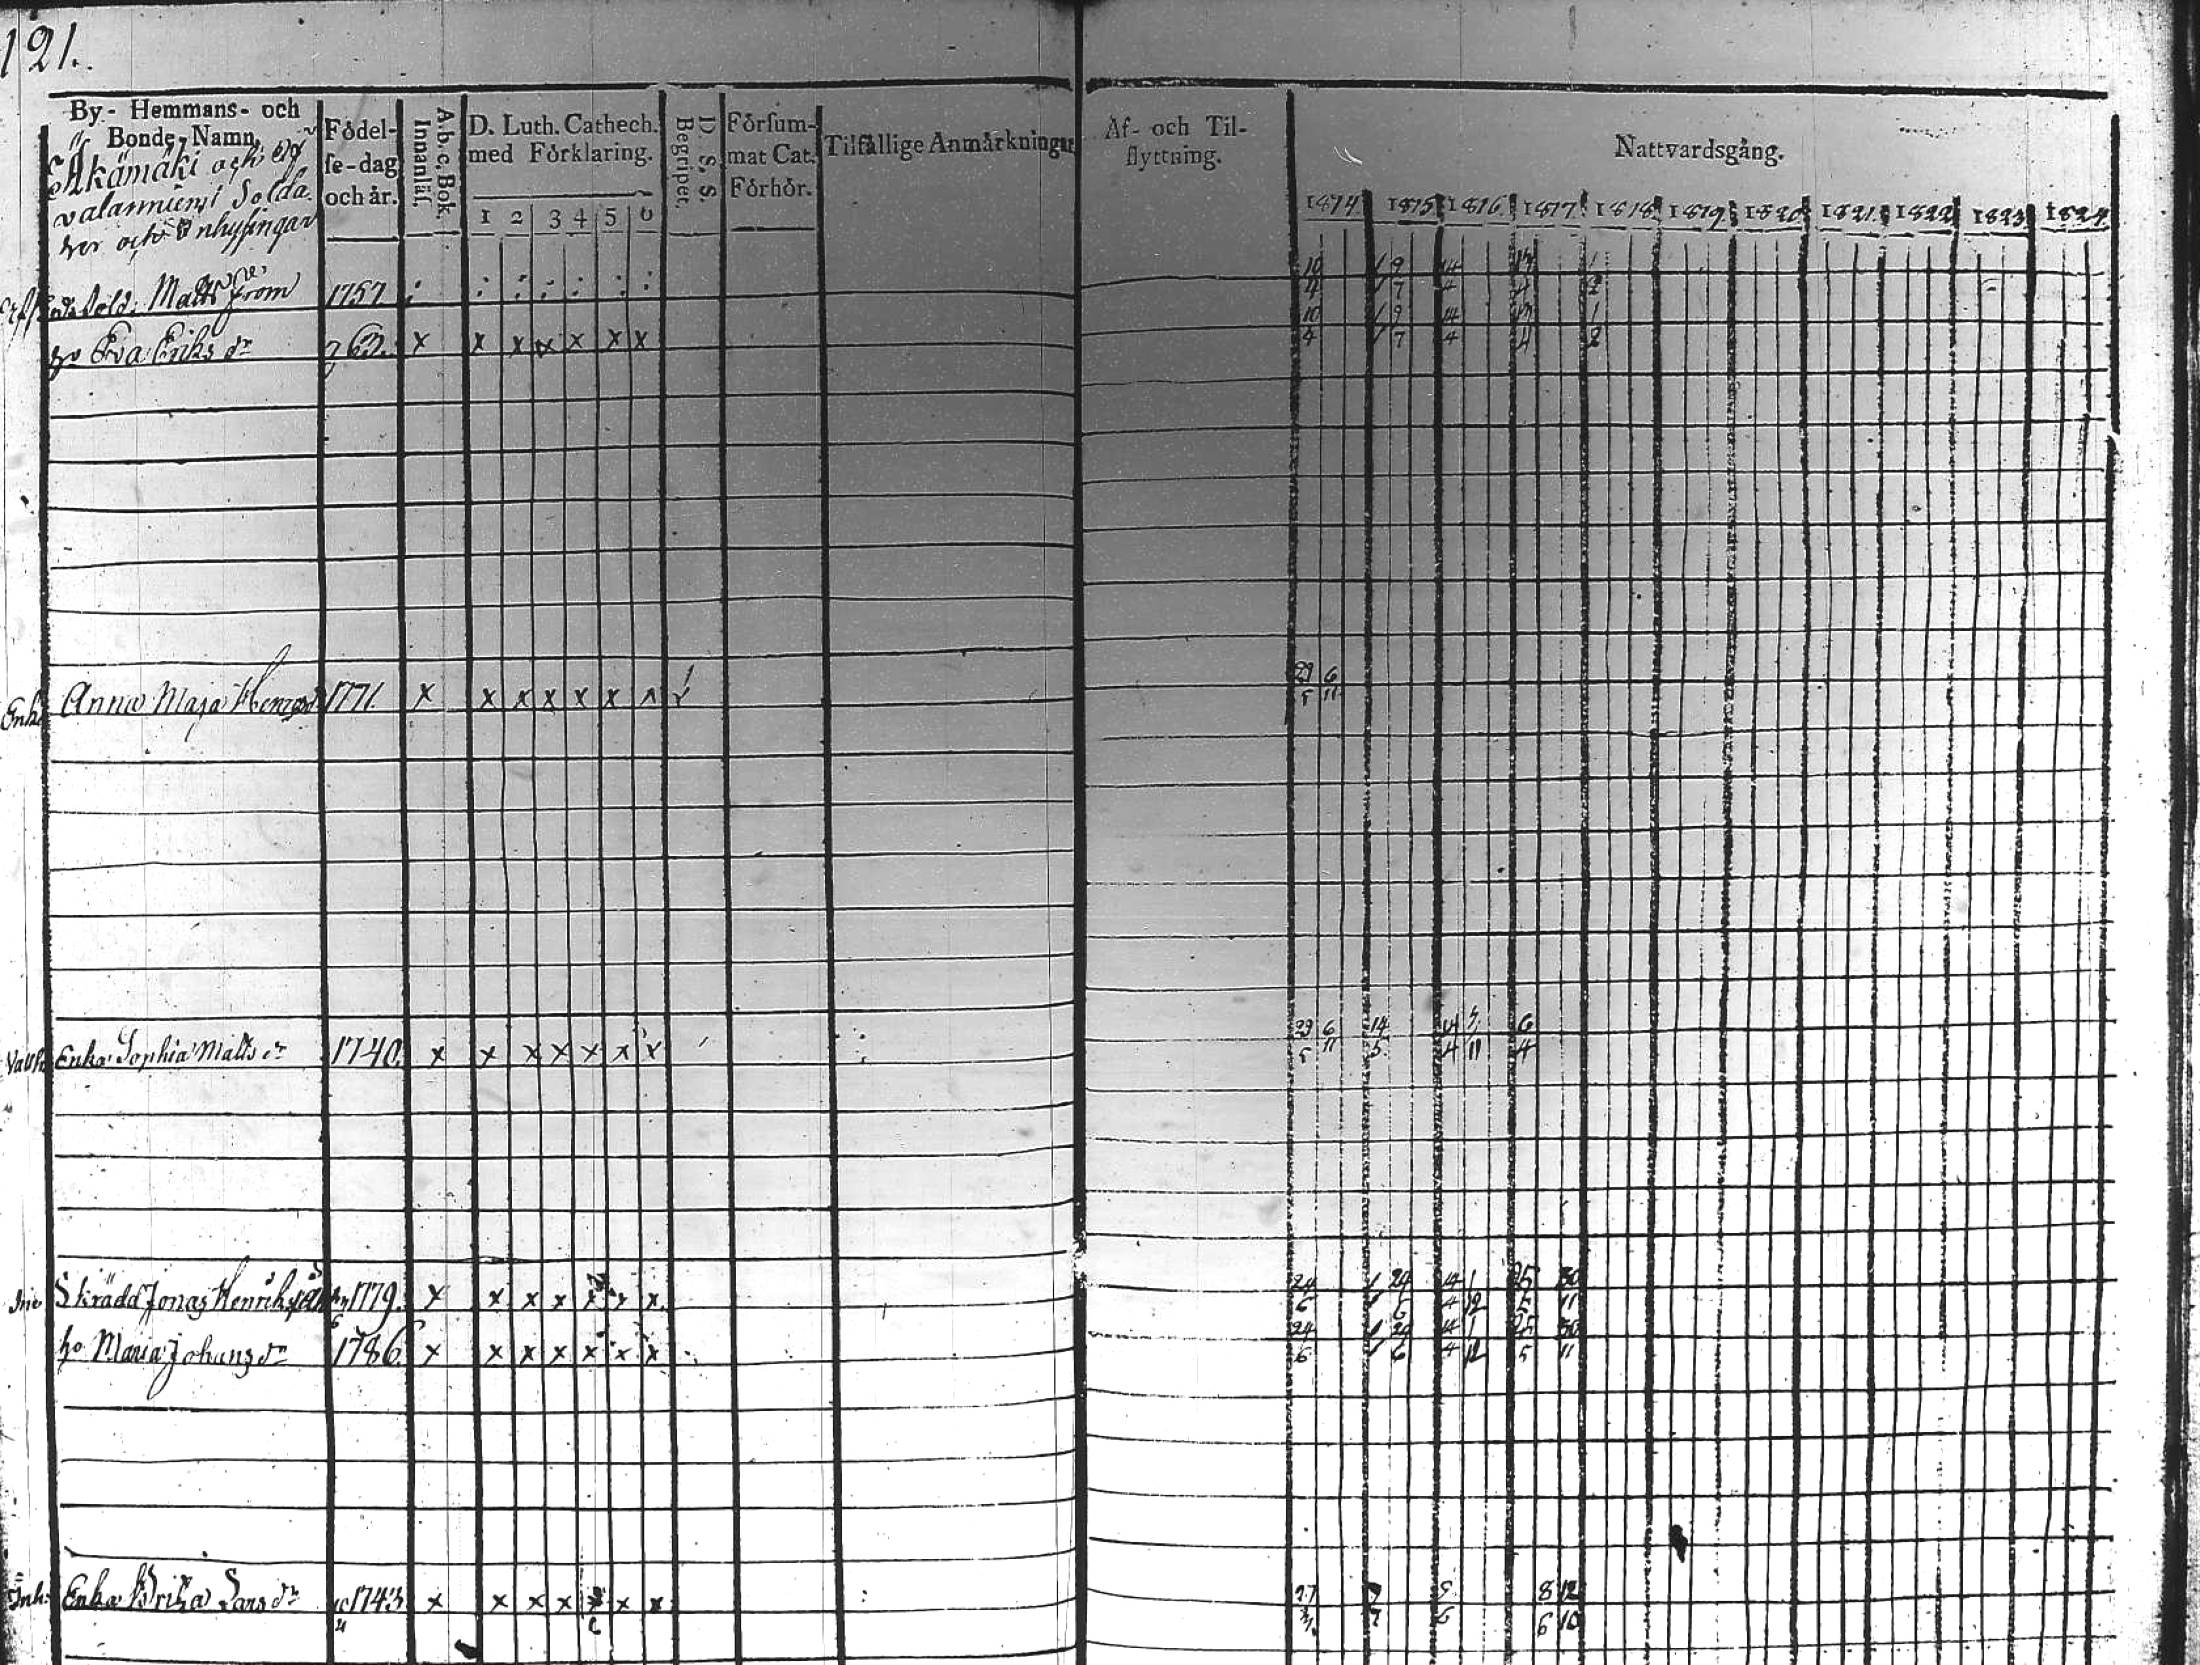 121.
By- Hemmans- och
Bonde-Namn.
Födel-
se-dag
och år.
A. b. c. Bok.
Innanläs.
D. Luth. Cathech.
med Förklaring.
1 2 3 4 5 6
D. S. S.
Begripet.
Försum-
mat Cat.
Förhör.
Tilfällige Anmärkningar
Af- och Til-
flyttning.
Nattvardsgång.
1814 1815 1816 1817 1818 1819 1820 1821 1822 1823 1824
och
Solda
ter och Inhysingar
Sold. Matts From 1757
10 1 9 14 1
4 1 7 4 4 2
ho Eva Eriks dr 763. x x x x x x x
10 1 9 14 1
4 1 7 4 4 2
Enk. Anna Maja 1771. x x x x x x x
29 6
5 11
Enka Sophia Matts dr 1740. x x x x x x x
29 6 14 14 6
5 11 5 4 11 4
Skrädd Jonas Henriks 1779. x x x x x x x
24 1 24 14 1 25 30
6 1 6 4 12 5 11
ho Maria Johans dr 1786. x x x x x x x
24 1 24 14 1 25 30
6 1 6 4 12 5 11
Inh. Enka Brita Lars dr 1743 x x x x x x
27 9 8 12
7 6 6 10